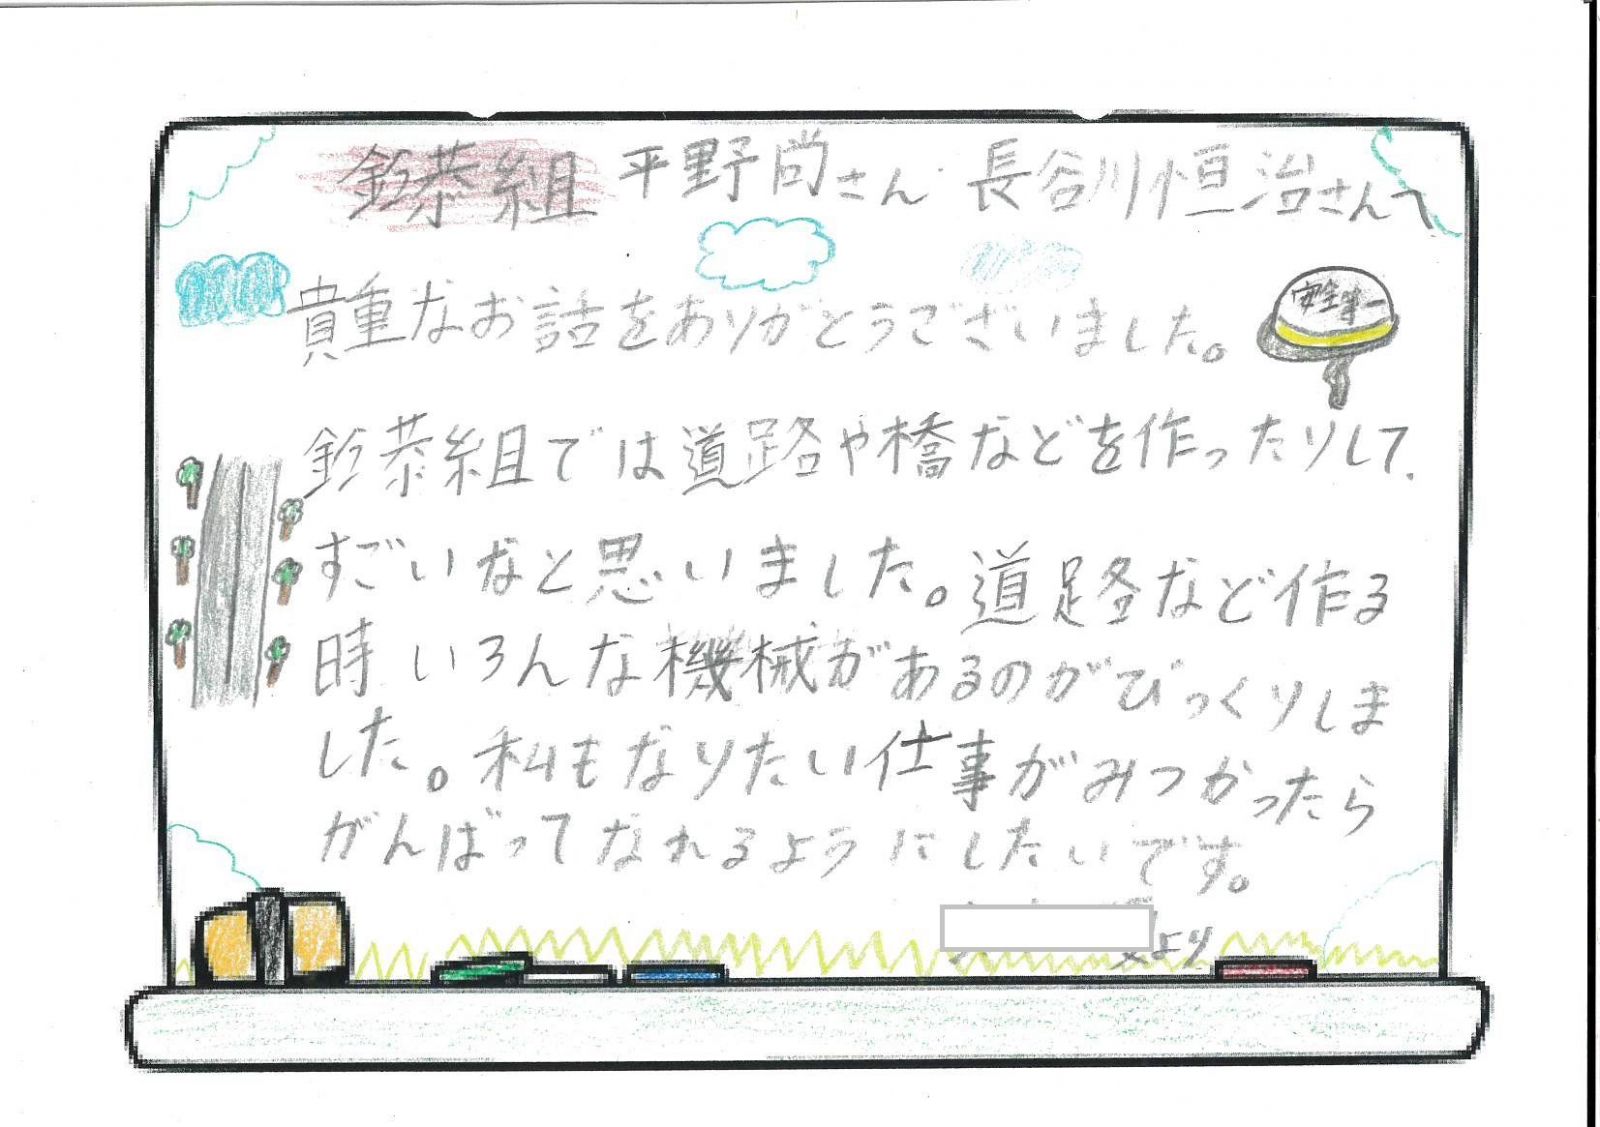 鈴恭組 平野尚さん 長谷川恒治さんへ
貴重なお話をありがとうございました。
安全第一
鈴恭組では道路や橋などを作ったりして、
すごいなと思いました。道路など作る
時いろんな機械があるのがびっくりしま
した。私もなりたい仕事がみつかったら
がんばってなれるようにしたいです。
より